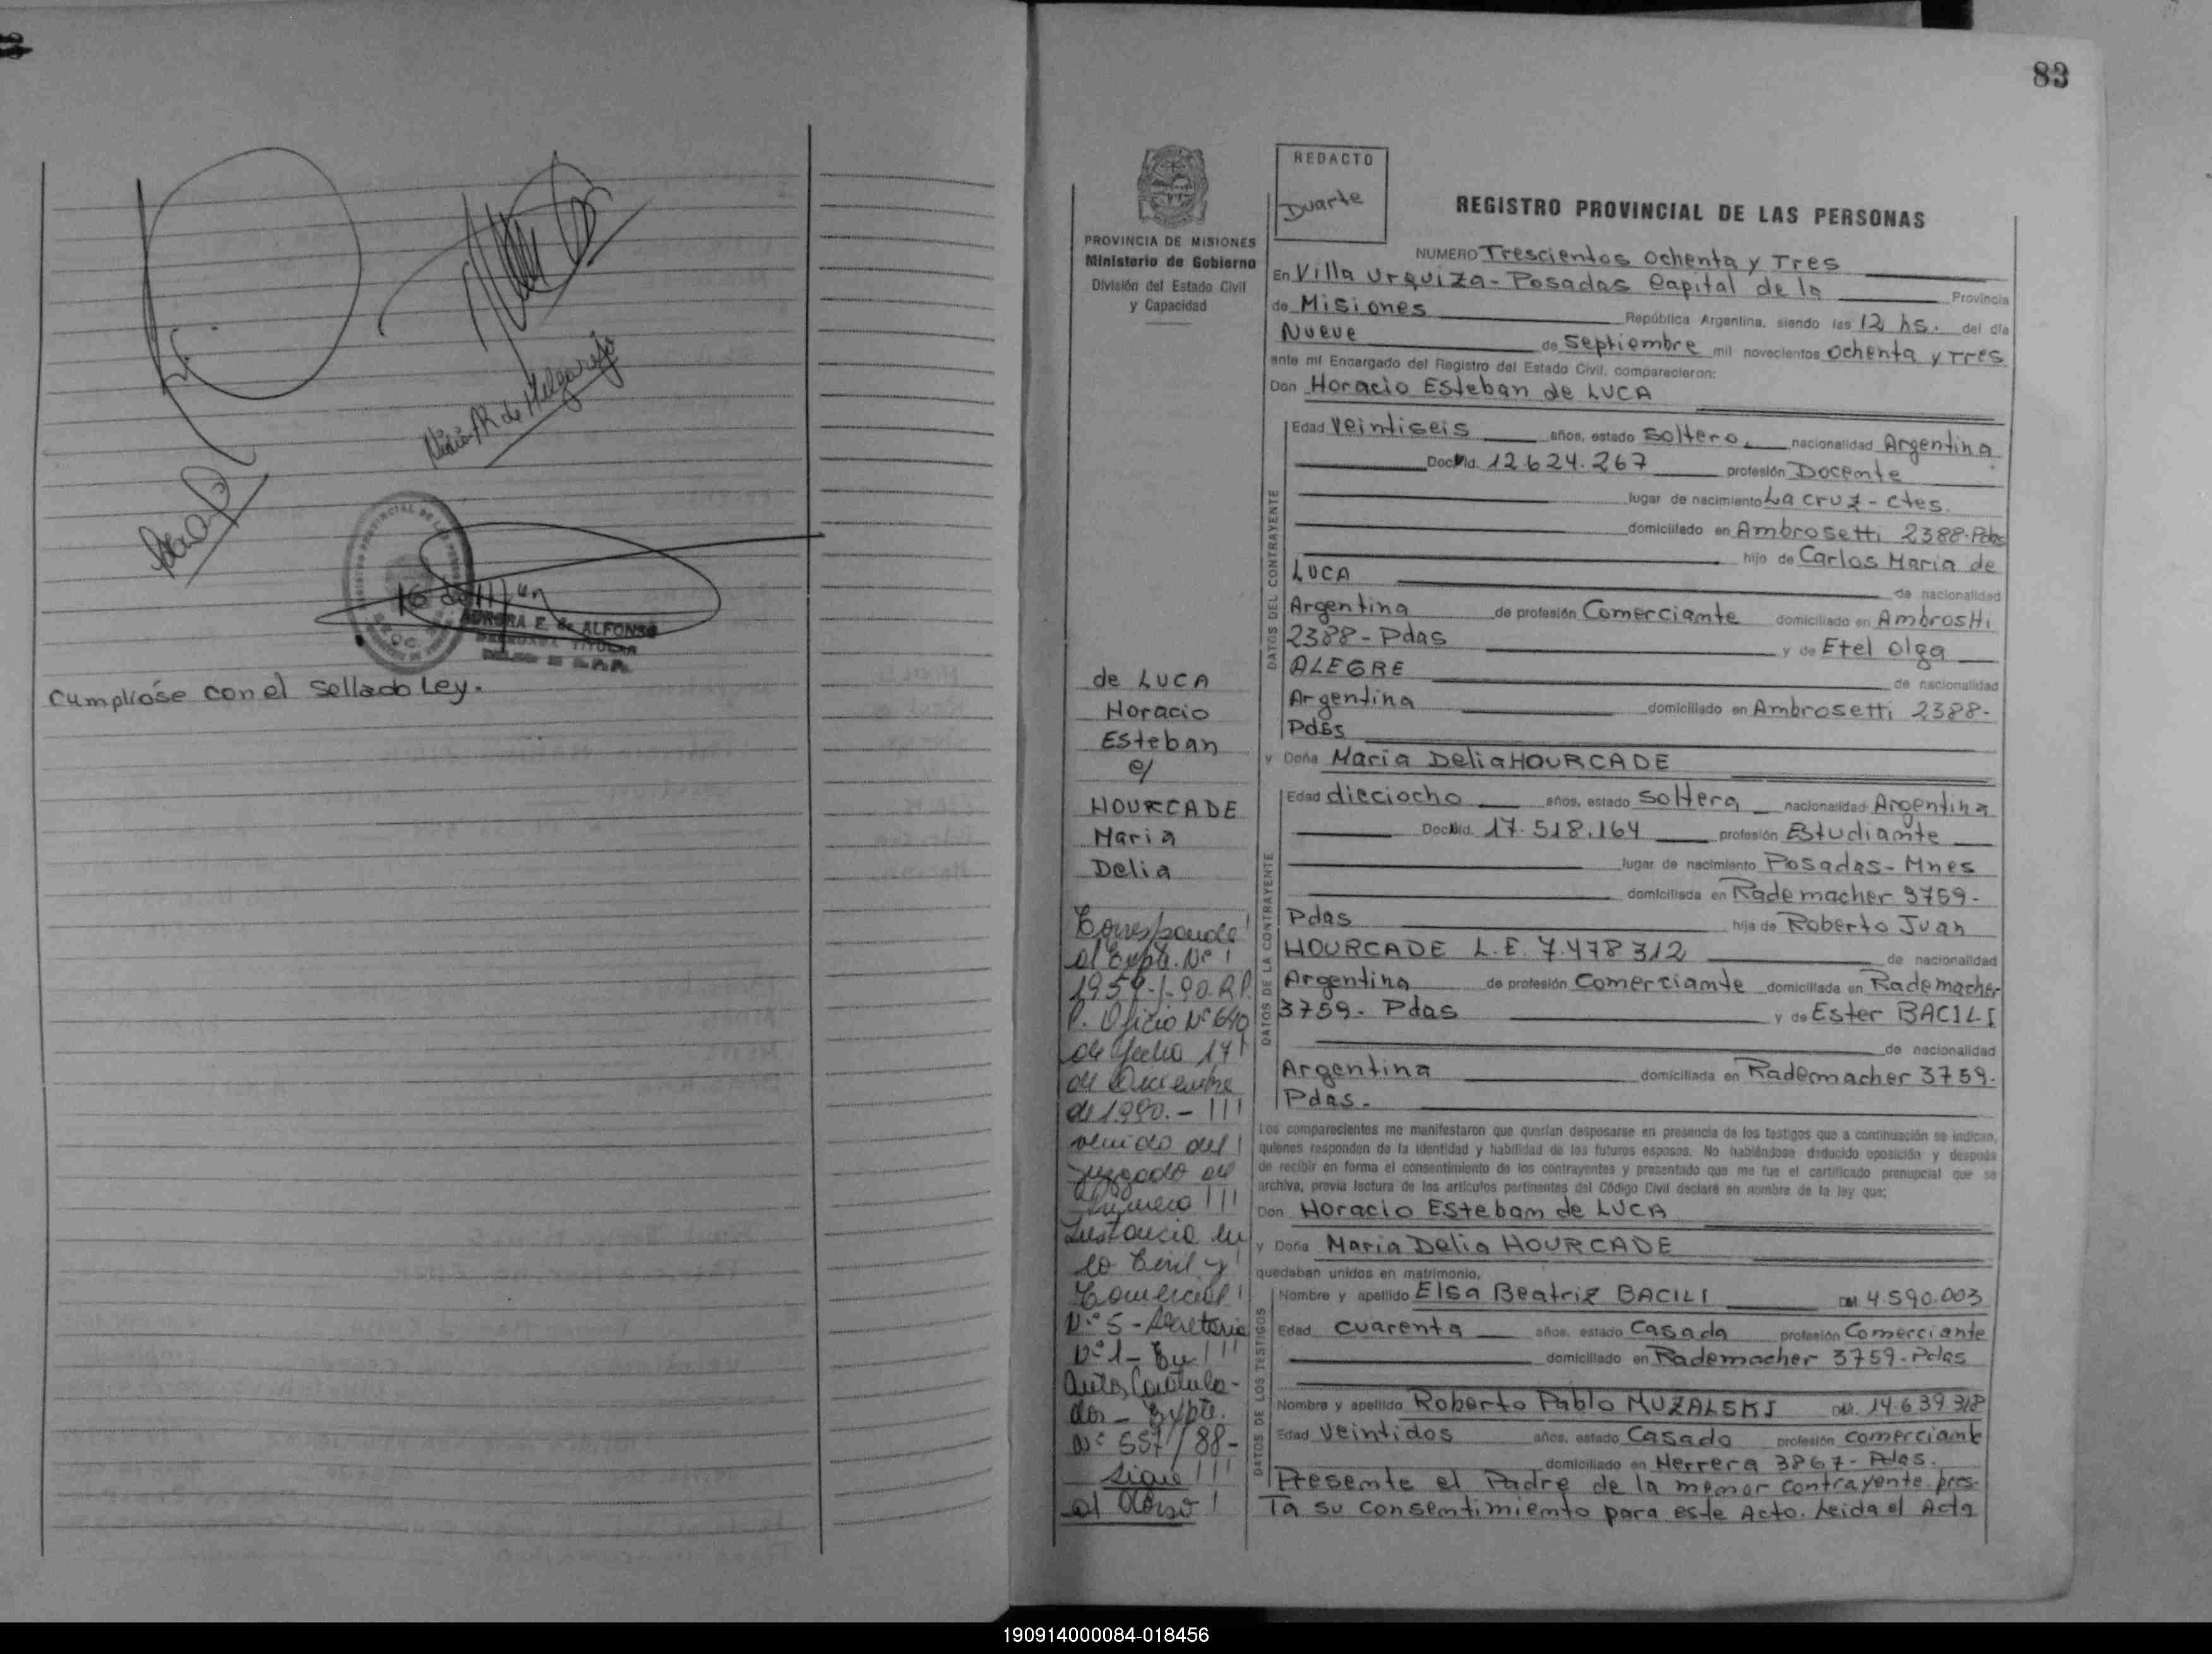 Cumplióse con el Sellado Ley.
AURORA E. de ALFONSO
83
REDACTO
Duarte
PROVINCIA DE MISIONES
Ministerio de Gobierno
División del Estado Civil
y Capacidad
REGISTRO PROVINCIAL DE LAS PERSONAS
NUMERO Trescientos Ochenta y Tres
En Villa Urquiza - Posadas Capital de la Provincia
de Misiones República Argentina, siendo las 12 hs. del día
Nueve de Septiembre mil novecientos Ochenta y Tres
ante mí Encargado del Registro del Estado Civil, comparecieron:
Don Horacio Esteban de LUCA
DATOS DEL CONTRAYENTE
Edad Veintiseis años, estado Soltero nacionalidad Argentina
Doc. Id. 12.624.267 profesión Docente
lugar de nacimiento La Cruz - Ctes.
domiciliado en Ambrosetti 2388-Pdas
hijo de Carlos Maria de
LUCA de nacionalidad
Argentina de profesión Comerciante domiciliado en Ambrostti
2388 - Pdas y de Etel Olga
ALEGRE de nacionalidad
Argentina domiciliado en Ambrosetti 2388-
Pdas
y Doña Maria Delia HOURCADE
DATOS DE LA CONTRAYENTE
Edad dieciocho años, estado Soltera nacionalidad Argentina
Doc. Id. 17.518.164 profesión Estudiante
lugar de nacimiento Posadas - Mnes
domiciliada en Rademacher 3759-
Pdas hija de Roberto Juan
HOURCADE L.E. 7.478312 de nacionalidad
Argentina de profesión Comerciante domiciliada en Rademacher
3759- Pdas y de Ester BACILI
de nacionalidad
Argentina domiciliada en Rademacher 3759-
Pdas.
Los comparecientes me manifestaron que querían desposarse en presencia de los testigos que a continuación se indican,
quienes responden de la identidad y habilidad de los futuros esposos. No habiéndose deducido oposición y después
de recibir en forma el consentimiento de los contrayentes y presentado que me fue el certificado prenupcial que se
archiva, previa lectura de los artículos pertinentes del Código Civil declaré en nombre de la ley que:
Don Horacio Esteban de LUCA
y Doña Maria Delia HOURCADE
quedaban unidos en matrimonio.
DATOS DE LOS TESTIGOS
Nombre y apellido Elsa Beatriz BACILI 4.590.003
Edad cuarenta años, estado Casada profesión Comerciante
domiciliado en Rademacher 3759-Pdas
Nombre y apellido Roberto Pablo MUZALSKI 14.639.318
Edad Veintidos años, estado Casado profesión comerciante
domiciliado en Herrera 3867- Pdas.
Presente el Padre de la menor contrayente pres-
Ta su consentimiento para este Acto. Leida el Acta
de LUCA
Horacio
Esteban
c/
HOURCADE
Maria
Delia
Corresponde
al Expte. Nº
1957-1-90.R.P.
P. Oficio Nº 640
de fecha 17
de Diciembre
de 1990.-
venido del
Juzgado de
Primera
Instancia en
lo Civil y
Comercial
Nº 5 - Secretaria
Nº 1 - En
Autos Caratula-
dos - Expte.
Nº 557/88-
Sigue
al dorso
190914000084-018456